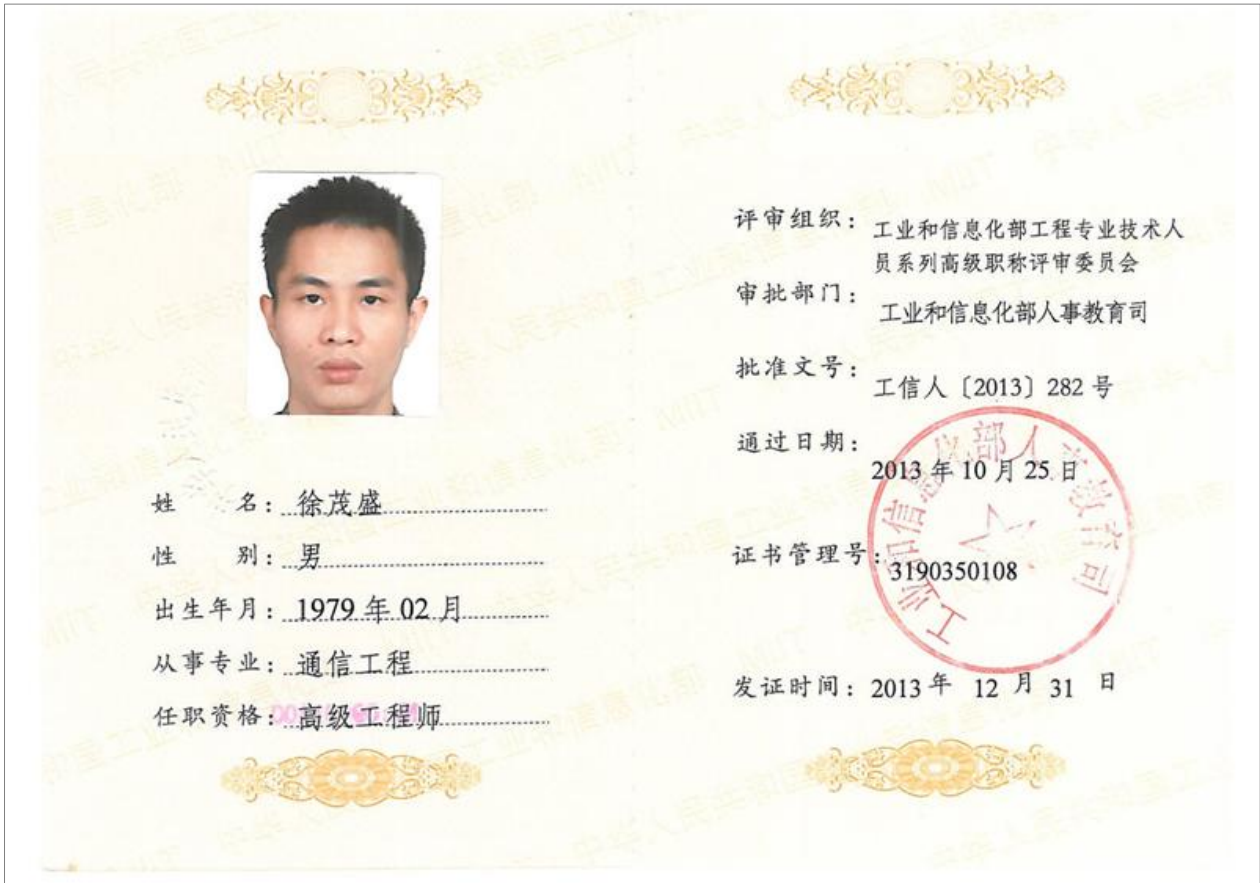 姓 名：徐茂盛
性 别：男
出生年月：1979 年 02 月
从事专业：通信工程
任职资格：高级工程师
评审组织：工业和信息化部工程专业技术人
员系列高级职称评审委员会
审批部门：工业和信息化部人事教育司
批准文号：工信人〔2013〕282 号
通过日期：2013 年 10 月 25 日
证书管理号：3190350108
工业和信息化部人事教育司
发证时间：2013 年 12 月 31 日